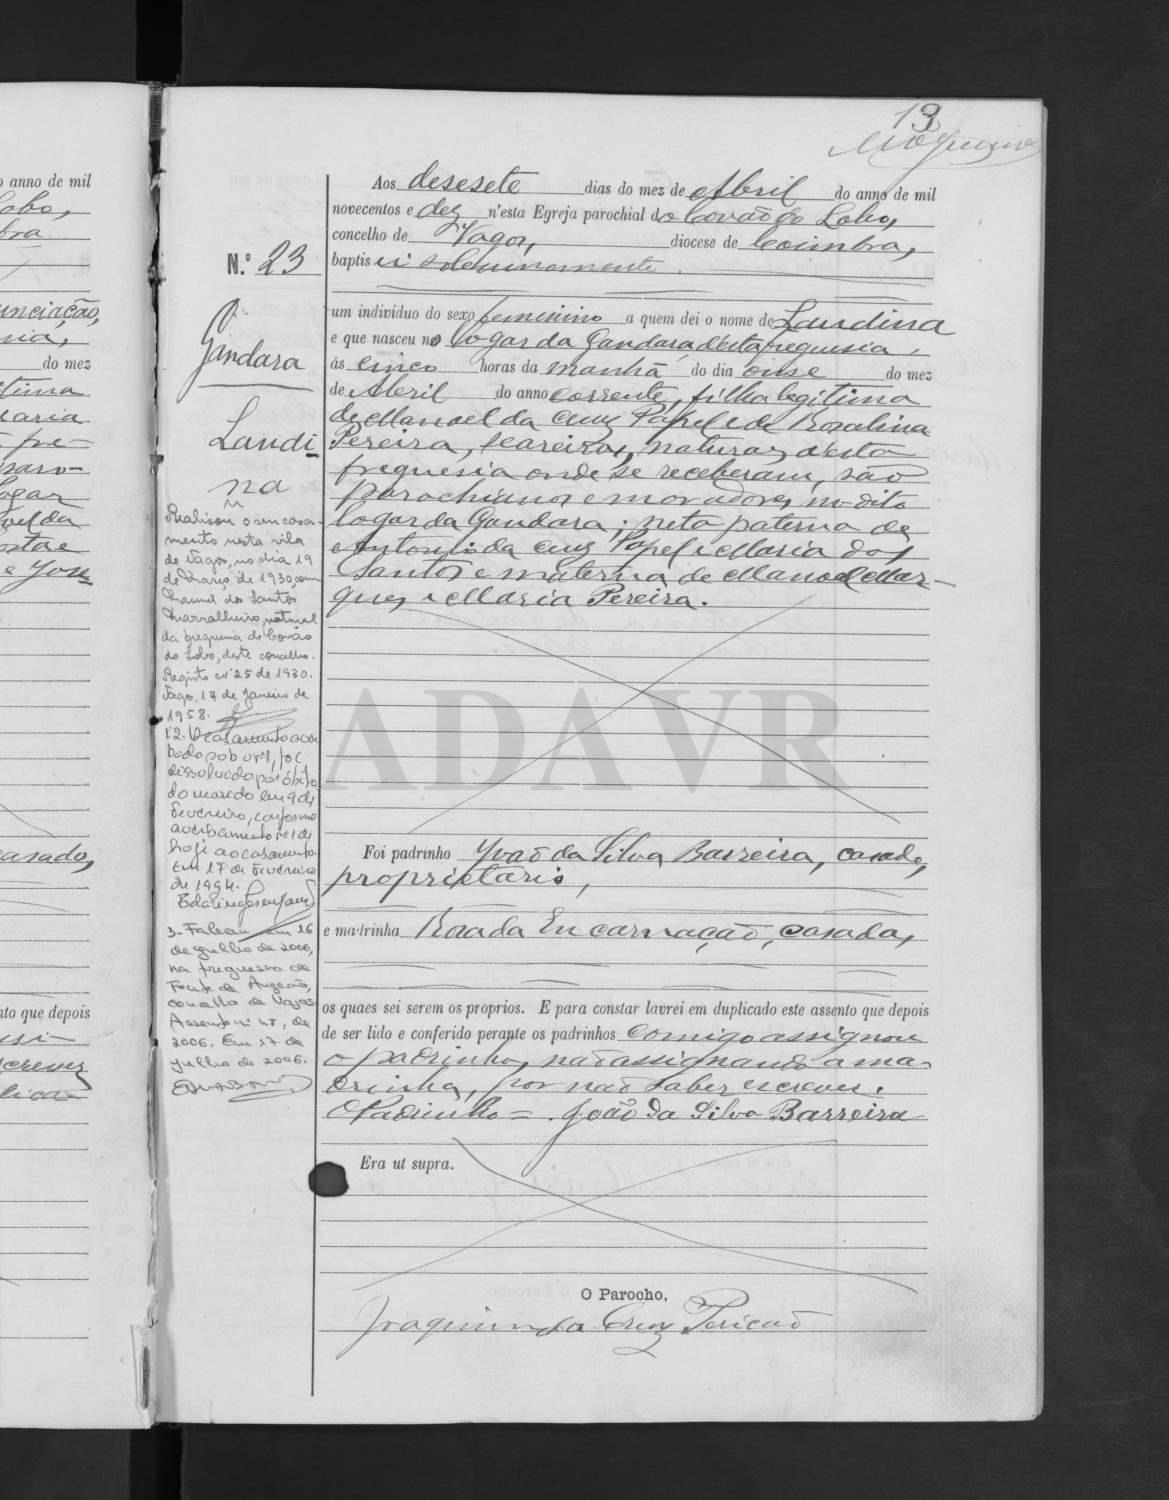 o anno de mil
Lobo,
bra
unciação,
ria,
do mez
tima
Maria
pe
saro-
logar
vel da
osta e
e José
casado,
nto que depois
usi-
crever
lica-
13
Aos desesete dias do mez de Abril do anno de mil
novecentos e dez n'esta Egreja parochial do Covão do Lobo,
concelho de Vagos, diocese de Coimbra,
baptisei solemnemente
N.º 23
Gandara
Laudi-
na
um individuo do sexo feminino a quem dei o nome de Laudina
e que nasceu no logar da Gandara, d'esta freguesia,
ás cinco horas da manhã do dia onse do mez
de Abril do anno corrente, filha legitima
de Manoel da Cruz Papel e de Rosalina
Pereira, seareiros, naturaes d'esta
freguesia onde se receberam, são
parochianos e moradores no dito
logar da Gandara; neta paterna de
Antonio da Cruz Papel e Maria dos
Santos e materna de Manoel Mar-
ques e Maria Pereira.
1
Realisou o seu casa-
mento nesta vila
de Vagos, no dia 19
de Março de 1930, com
Manuel dos Santos
Marralheiro, natural
da freguesia de Covão
do Lobo, deste concelho.
Registo nº 25 de 1930.
Vagos, 17 de Janeiro de
1958.
nº2. O casamento aver
bado sob o nº1, foi
dissolvido por óbito
do marido em 9 de
Fevereiro, conforme
averbamento nº1 de
hoje ao casamento.
Em 17 de Fevereiro
de 1994.
3- Faleceu em 16
de Julho de 2006,
na freguesia de
Fonte de Angeão,
concelho de Vagos
Assento nº 48, de
2006. Em 17 de
Julho de 2006.
ADAVR
Foi padrinho João da Silva Barreira, casado,
proprietario,
e madrinha Rosa da Encarnação, casada,
os quaes sei serem os proprios. E para constar lavrei em duplicado este assento que depois
de ser lido e conferido perante os padrinhos comigo assignou
o padrinho, não assignando a ma-
drinha, por não saber escrever.
O Padrinho = João da Silva Barreira
Era ut supra.
O Parocho,
Joaquim da Cruz Pericão